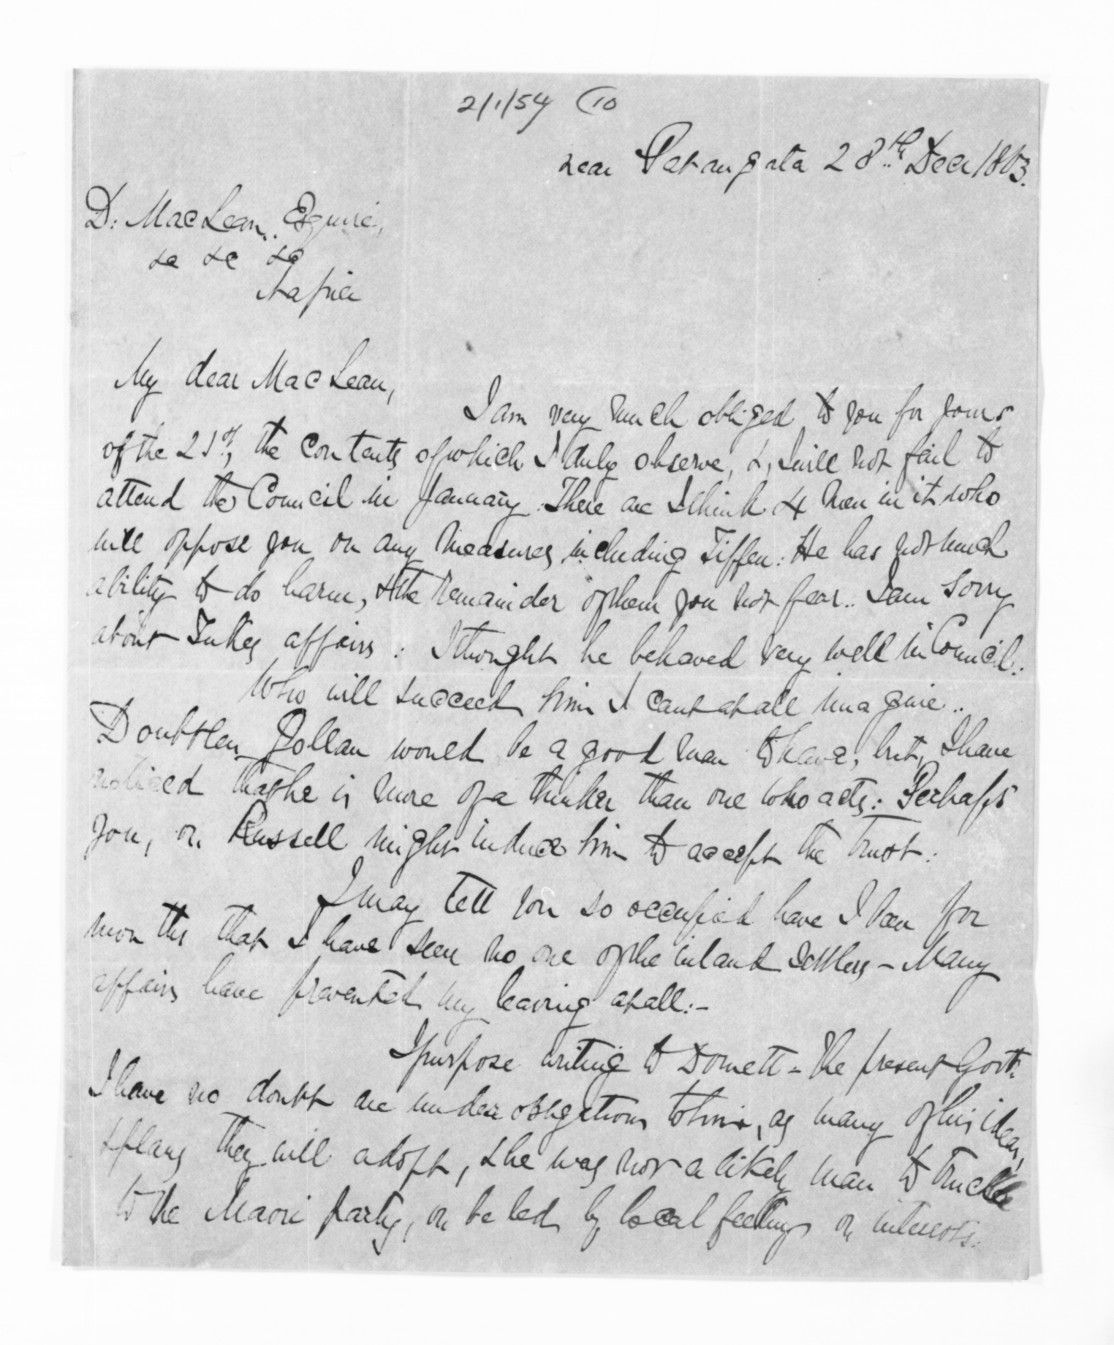 2/1/54 (10
near Patangata 28th Decr 1863.
D. MacLean, Esquire,
&c &c &c
Napier
My dear MacLean,
I am very much obliged to you for yours
of the 21st, the contents of which I duly observe, &, I will not fail to
attend the Council in January. There are I think 4 men in it who
will oppose you on any measures including Tiffen: He has not much
ability to do harm, & the remainder of them you not fear.. I am sorry
about Tukes affairs: I thought he behaved very well in Council:
Who will succeed him I cant at all imagine..
Doubtless Dollan would be a good man to have; but, I have
noticed that he is more of a thinker than one who acts: Perhaps
you, or Russell might induce him to accept the trust:
I may tell you so occupied have I been for
months that I have seen no one of the inland settlers - Many
affairs have prevented my leaving at all:-
I purpose writing to Domett - the present Govt:
I have no doubt are under obligations to him, as many of his ideas,
& plans they will adopt, & he was not a likely man to truckle
to the Maori party, or be led by local feelings or interests: